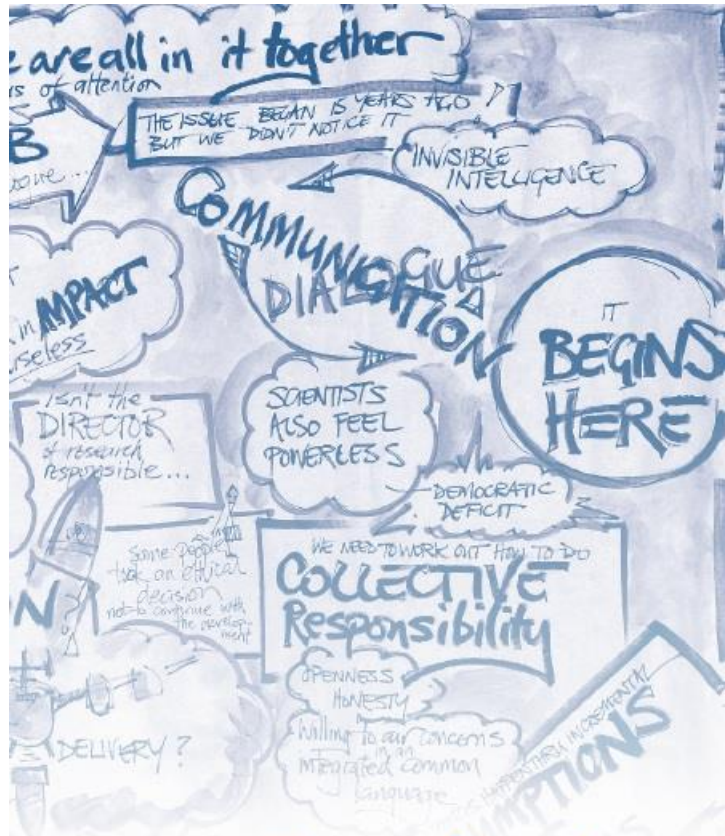 e are all in it together
of attention
THE ISSUE BEGAN 15 YEARS AGO
BUT WE DIDN'T NOTICE IT
B
INVISIBLE
INTELLIGENCE
COMMUNICATION
DIALOGUE
in IMPACT
useless
IT
BEGINS
HERE
isn't the
DIRECTOR
of research
responsible...
SCIENTISTS
ALSO FEEL
POWERLESS
DEMOCRATIC
DEFICIT
Some people
took an ethical
decision
not to continue with
the develop-
ment
WE NEED TO WORK OUT HOW TO DO
COLLECTIVE
Responsibility
N
OPENNESS
HONESTY
Willing to our concerns
in an
integrated common
language
DELIVERY?
THRU INCREMENTAL
UMPTIONS